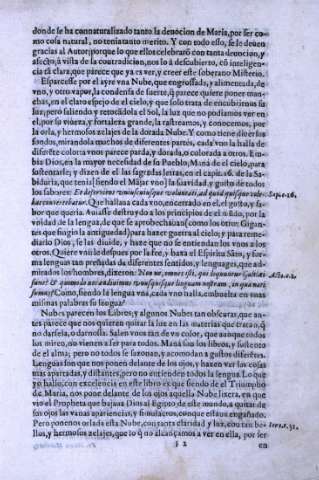 donde se ha connaturalizado tanto la deuocion de Maria, por ser como
cosa natural, no tenia tanto merito. Y con todo esso, se le deuen
gracias al Autor; porque lo que ellos celebrarõ con tanta deuocion, y
afecto, à vista de la contradicion, nos lo à descubierto, cõ inteligencia
tã clara, que parece que ya es ver, y creer este soberano Misterio.
Esparcesse por el ayre vna Nube, que engrossada, y alimentada, de
vno, y otro vapor, la condensa de suerte, q̃ parece quiere poner manchas,
en el claro espejo de el cielo, y que solo trata de encubrirnos su
luz; pero saliendo y retocãdola el Sol, la luz que no podiamos ver en
el, por su viueza, y fortaleza grande, la rastreamos, y conocemos, por
la orla, y hermosos zelajes de la dorada Nube. Y como tiene diuersos
fondos, mirandola muchos de diferentes partes, cada vno la halla de
diferẽte color: a vnos parece parda, y dorada, o colorada a otros. Embia
Dios, en la mayor necesidad de su Pueblo, Manà de el cielo, para
sustentarle; y dizen de el las sagradas letras, en el capit. 16. de la Sabiduria,
que tenia [siendo el Mãjar vno] la suauidad, y gusto de todos
los sabores: Et deseruiens vniuscuiusque voluntati, ad quod quisque volebat
conuertebatur. Que hallaua cada vno, encerrado en el, el gusto, y sabor
Sapie. 16.
que queria. Auiasse destruydo a los principios de el mũdo, por la
vnidad de la lengua, de que se aprobechauan [como los otros Gigantes
que fingio la antiguedad] para hazer guerra al cielo; y para remediarlo
Dios, se las diuide, y haze que no se entiendan los vnos a los
otros. Quiere vnirle despues por la fee, y baxa el Espiritu Santo, y forma
lenguas tan preñadas de diferentes sentidos, y lenguages, que admirados
los hombres, dixeron: Nonne, omnes isti, qui loquuntur Galilæi
sunt? & quomodo nos audiuimus vnusquisque linguam nostram, in qua nati
Act. c. 2.
sumus? Como, siendo la lengua vna, cada vno halla, embuelta en unas
mismas palabras su lengua?
Nubes parecen los Libros; y algunos Nubes tan obscuras, que antes
parece que nos quieren quitar la luz en las materias que tratan, q̃
no darsela, o darnosla. Salen vnos tan de vn color, que aunque todos
los miren, no vienen a ser para todos. Manà son los libros, y sustento
de el alma; pero no todos se sazonan, y acomodan a gustos diferẽtes.
Lenguas son que nos ponen delante de los ojos, y hazen ver las cosas
mas apartadas, y distantes, pero no entienden todos la lengua. Lo que
yo hallo, con excelencia en este libro es que siendo de el Triumpho
de Maria, nos pone delante de los ojos aquella Nube ligera, en que
vio el Propheta que baxaua Dios al Egipto de este mundo, a quitar de
sus ojos las vanas apariencias, y simulacros, con que estaua engañado.
Pero ponenos orlada esta Nube, con tanta claridad y luz, con tan bellos,
Iere. c. 51.
y hermosos zelajes, que lo q̃ no alcançamos a ver en ella, por ser
§ 2
en